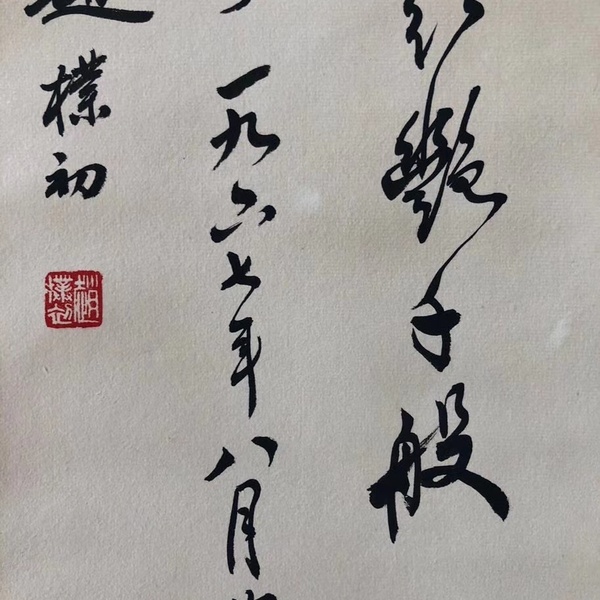 艷千般
一九六七年八月
趙樸初
趙樸初